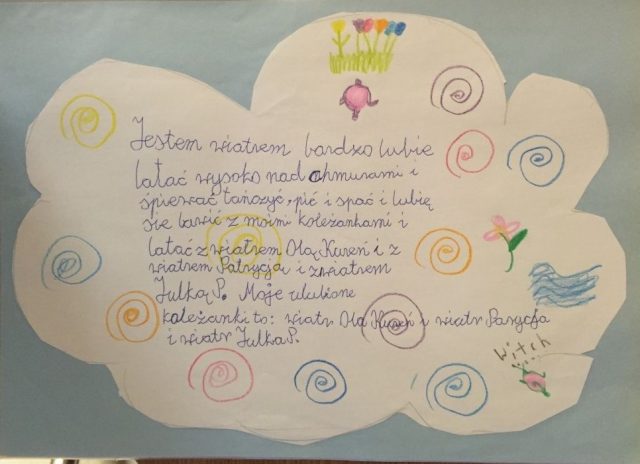 Jestem wiatrem bardzo lubie
latać wysoko nad chmurami i
śpiewać tańczyć, pić i spać i lubię
się bawić z moimi koleżankami i
latać z wiatrem Olą Kureń i z
wiatrem Patrycja i z wiatrem
Julką P. Moje ulubione
koleżanki to: wiatr Ola Kureń i wiatr Parycja
i wiatr Julka P.
Witch